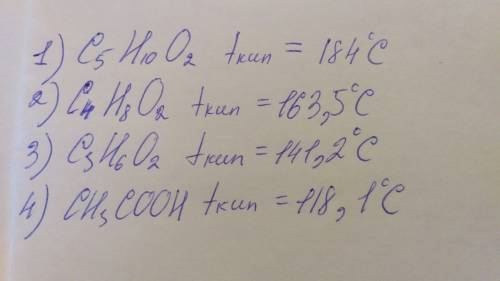 1) C₅H₁₀O₂ tкип = 184°C
2) C₄H₈O₂ tкип = 163,5°C
3) C₃H₆O₂ tкип = 141,2°C
4) CH₃COOH tкип = 118,1°C